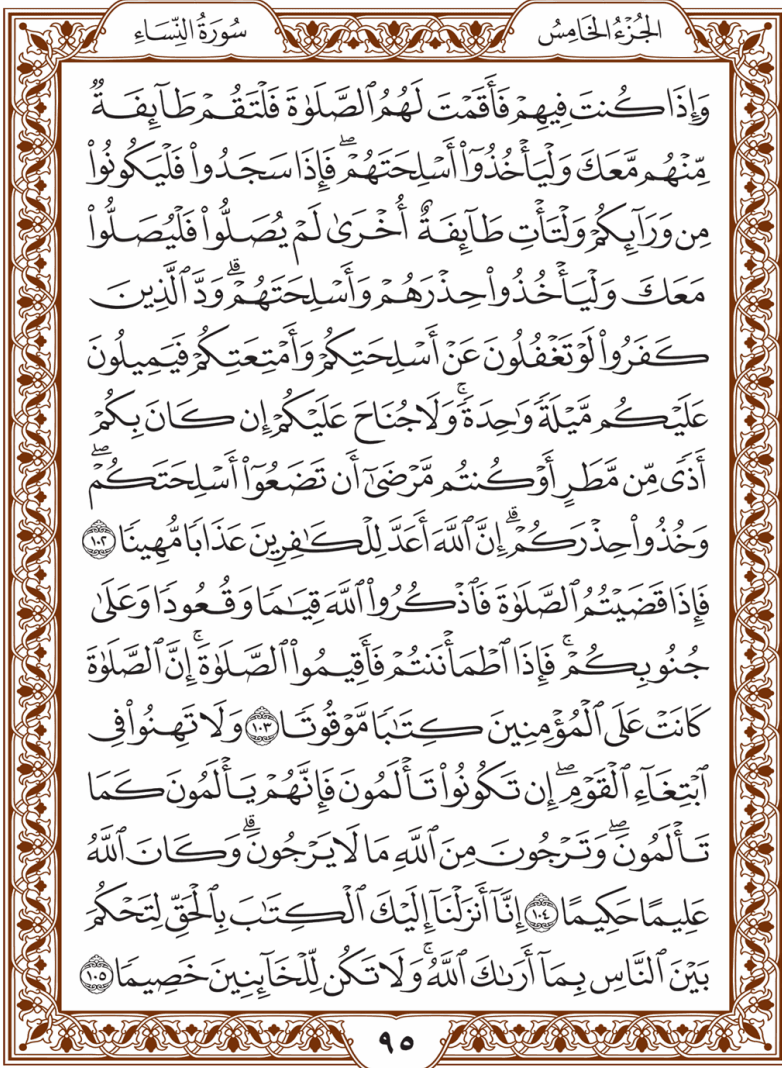 الجُزْءُ الخَامِسُ
سُورَةُ النِّسَاءِ
وَإِذَا كُنتَ فِيهِمْ فَأَقَمْتَ لَهُمُ ٱلصَّلَوٰةَ فَلْتَقُمْ طَآئِفَةٌ
مِّنْهُم مَّعَكَ وَلْيَأْخُذُوٓا۟ أَسْلِحَتَهُمْۖ فَإِذَا سَجَدُوا۟ فَلْيَكُونُوا۟
مِن وَرَآئِكُمْ وَلْتَأْتِ طَآئِفَةٌ أُخْرَىٰ لَمْ يُصَلُّوا۟ فَلْيُصَلُّوا۟
مَعَكَ وَلْيَأْخُذُوا۟ حِذْرَهُمْ وَأَسْلِحَتَهُمْۗ وَدَّ ٱلَّذِينَ
كَفَرُوا۟ لَوْ تَغْفُلُونَ عَنْ أَسْلِحَتِكُمْ وَأَمْتِعَتِكُمْ فَيَمِيلُونَ
عَلَيْكُم مَّيْلَةً وَٰحِدَةًۚ وَلَا جُنَاحَ عَلَيْكُمْ إِن كَانَ بِكُمْ
أَذًى مِّن مَّطَرٍ أَوْ كُنتُم مَّرْضَىٰٓ أَن تَضَعُوٓا۟ أَسْلِحَتَكُمْۖ
وَخُذُوا۟ حِذْرَكُمْۗ إِنَّ ٱللَّهَ أَعَدَّ لِلْكَـٰفِرِينَ عَذَابًا مُّهِينًا ١٠٢
فَإِذَا قَضَيْتُمُ ٱلصَّلَوٰةَ فَٱذْكُرُوا۟ ٱللَّهَ قِيَـٰمًا وَقُعُودًا وَعَلَىٰ
جُنُوبِكُمْۚ فَإِذَا ٱطْمَأْنَنتُمْ فَأَقِيمُوا۟ ٱلصَّلَوٰةَۚ إِنَّ ٱلصَّلَوٰةَ
كَانَتْ عَلَى ٱلْمُؤْمِنِينَ كِتَـٰبًا مَّوْقُوتًا ١٠٣ وَلَا تَهِنُوا۟ فِى
ٱبْتِغَآءِ ٱلْقَوْمِۖ إِن تَكُونُوا۟ تَأْلَمُونَ فَإِنَّهُمْ يَأْلَمُونَ كَمَا
تَأْلَمُونَۖ وَتَرْجُونَ مِنَ ٱللَّهِ مَا لَا يَرْجُونَۗ وَكَانَ ٱللَّهُ
عَلِيمًا حَكِيمًا ١٠٤ إِنَّآ أَنزَلْنَآ إِلَيْكَ ٱلْكِتَـٰبَ بِٱلْحَقِّ لِتَحْكُمَ
بَيْنَ ٱلنَّاسِ بِمَآ أَرَىٰكَ ٱللَّهُۚ وَلَا تَكُن لِّلْخَآئِنِينَ خَصِيمًا ١٠٥
٩٥